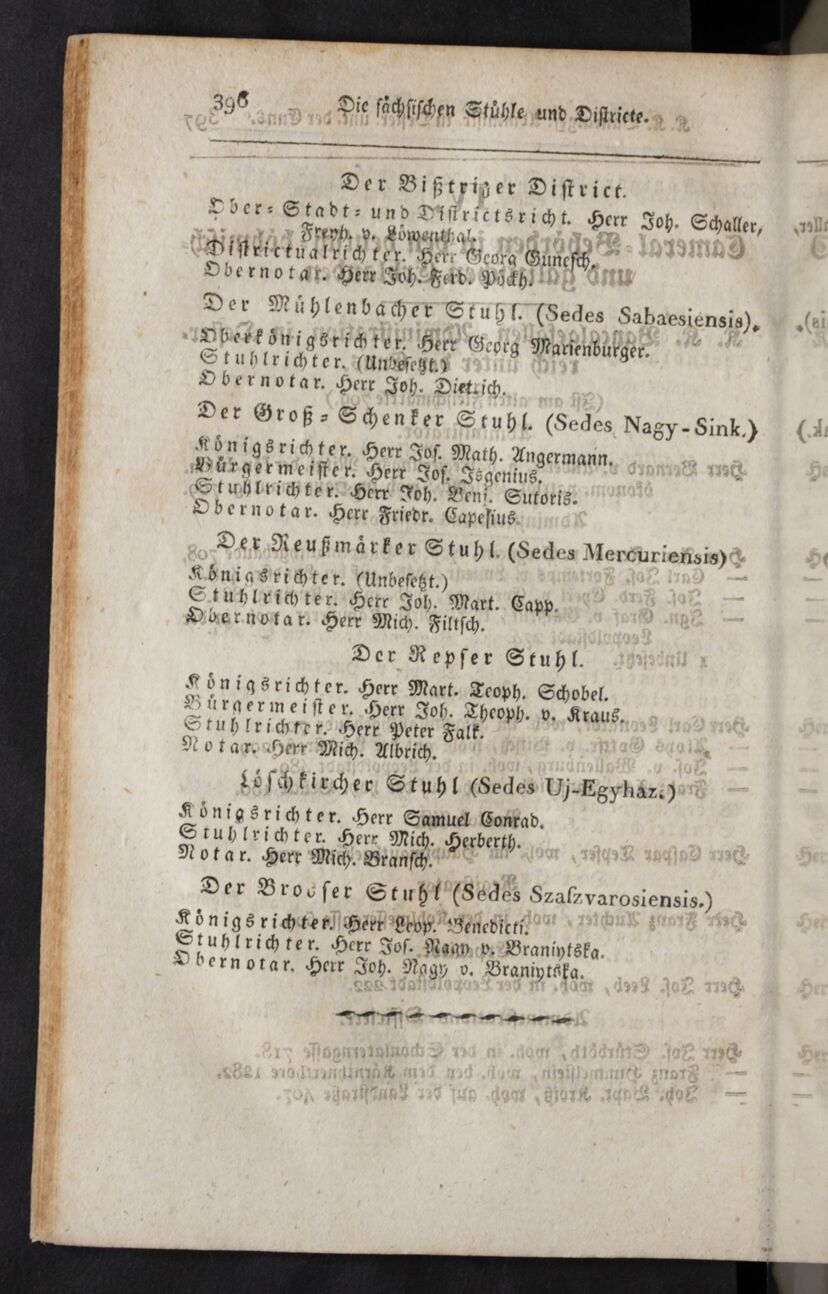 396 Die sächsischen Stühle und Districte.
Der Bißtrizer District.
Ober-Stadt- und Districtsricht. Herr Joh. Schaller,
Freyh. v. Löwenthal.
Districtualrichter. Herr Georg Gunesch.
Obernotar. Herr Joh. Ferd. Pöckh.
Der Mühlenbacher Stuhl. (Sedes Sabaesiensis).
Oberkönigsrichter. Herr Georg Marienburger.
Stuhlrichter. (Unbesetzt.)
Obernotar. Herr Joh. Dietrich.
Der Groß-Schenker Stuhl. (Sedes Nagy-Sink.)
Königsrichter. Herr Jos. Math. Angermann.
Bürgermeister. Herr Jos. Isgenius.
Stuhlrichter. Herr Joh. Benj. Sutoris.
Obernotar. Herr Friedr. Capesius.
Der Reußmärker Stuhl. (Sedes Mercuriensis)
Königsrichter. (Unbesetzt.)
Stuhlrichter. Herr Joh. Mart. Capp.
Obernotar. Herr Mich. Filtsch.
Der Repser Stuhl.
Königsrichter. Herr Mart. Teoph. Schobel.
Bürgermeister. Herr Joh. Theoph. v. Kraus.
Stuhlrichter. Herr Peter Falk.
Notar. Herr Mich. Albrich.
Löschkircher Stuhl (Sedes Uj-Egyház.)
Königsrichter. Herr Samuel Conrad.
Stuhlrichter. Herr Mich. Herberth.
Notar. Herr Mich. Bransch.
Der Brooser Stuhl (Sedes Szafzvarosiensis.)
Königsrichter. Herr Leop. Benedicti.
Stuhlrichter. Herr Jos. Nagy v. Braniytska.
Obernotar. Herr Joh. Nagy v. Braniytska.